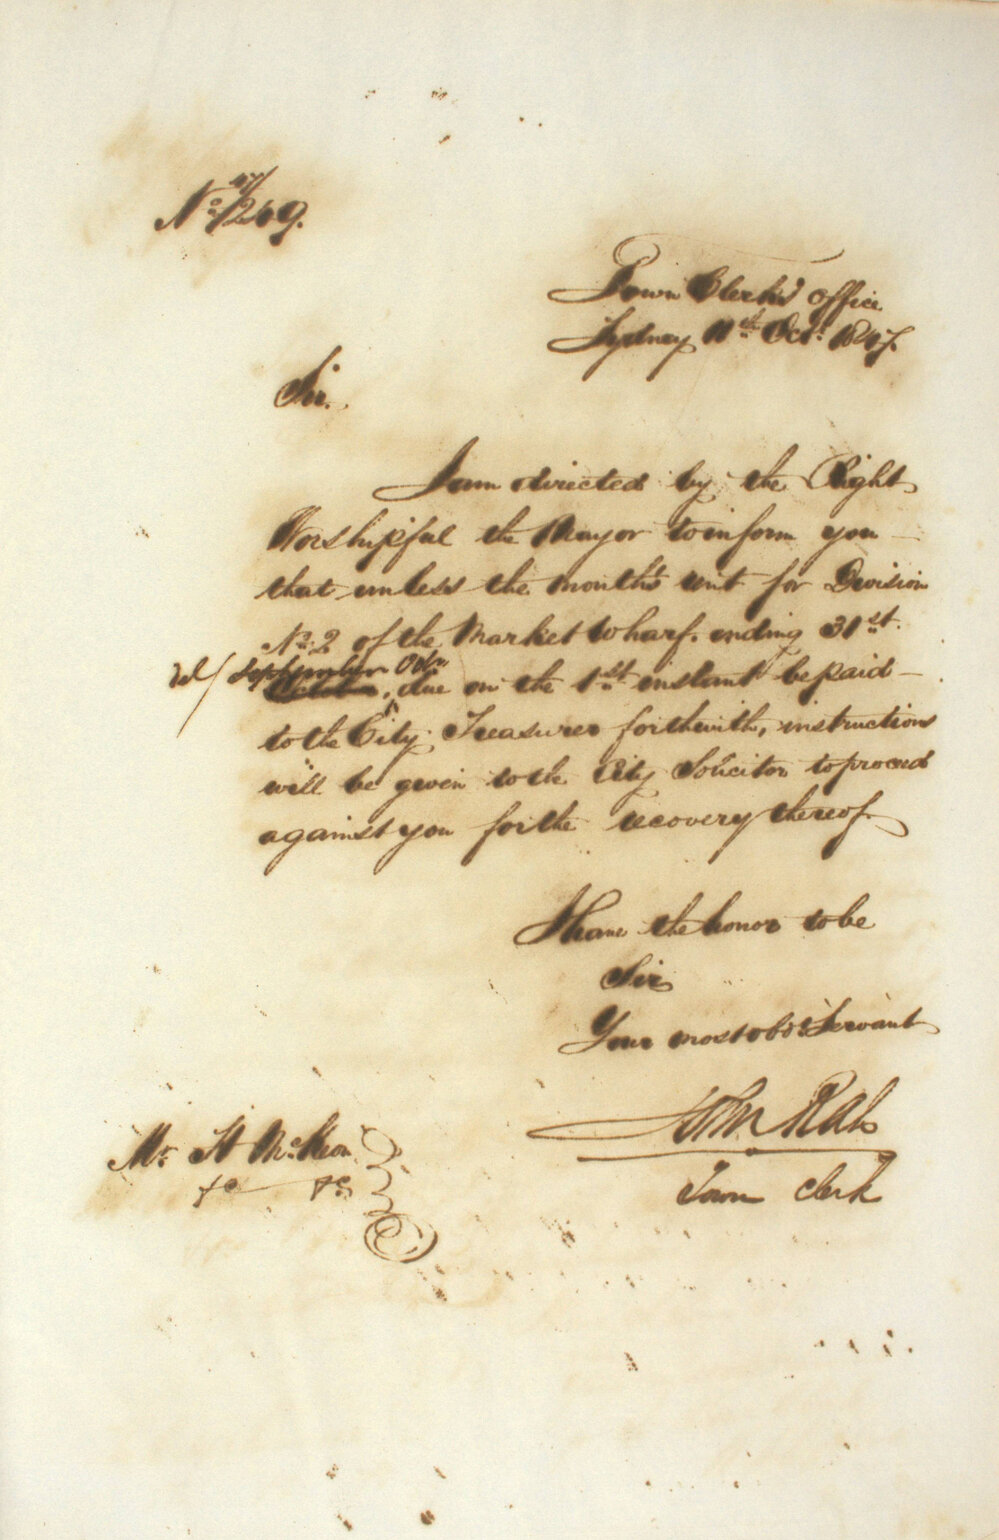 No. 47/249.
Town Clerk's Office
Sydney 11th Octr. 1847.
Sir.
I am directed by the Right
Worshipful the Mayor to inform you
that unless the month's rent for Division
No. 2 of the Market Wharf. ending 31st.
September Octr.
October, due on the 1st instant be paid
to the City Treasurer forthwith, instructions
will be given to the City Solicitor to proceed
against you for the recovery thereof.
I have the honor to be
Sir
Your most obt. Servant
John Rae
Town Clerk
Mr. H McKeon
&c &c